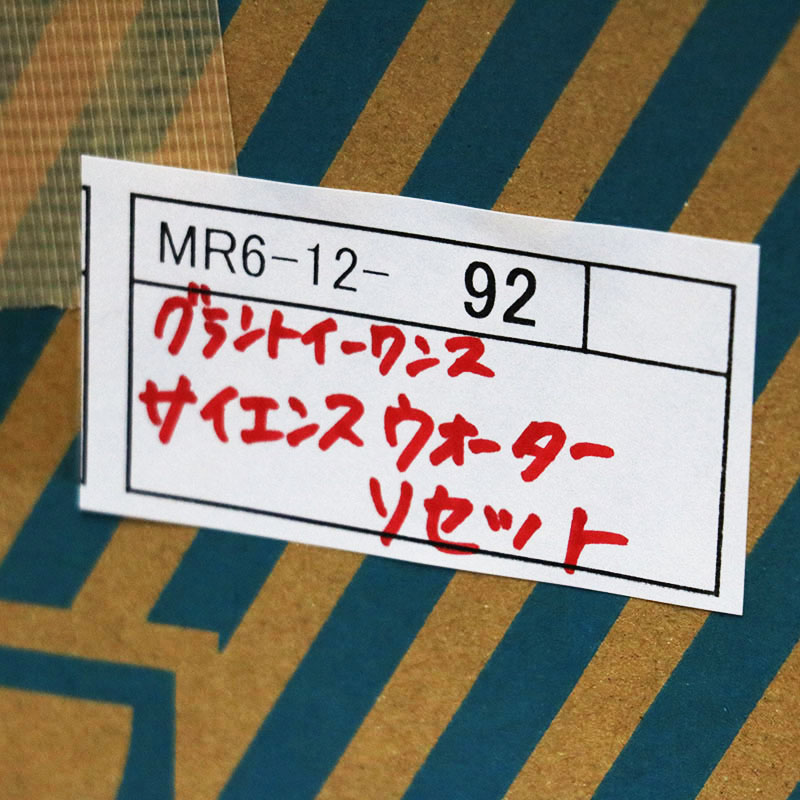 MR6-12- 92
グラントイーワンス
サイエンスウォーター
リセット